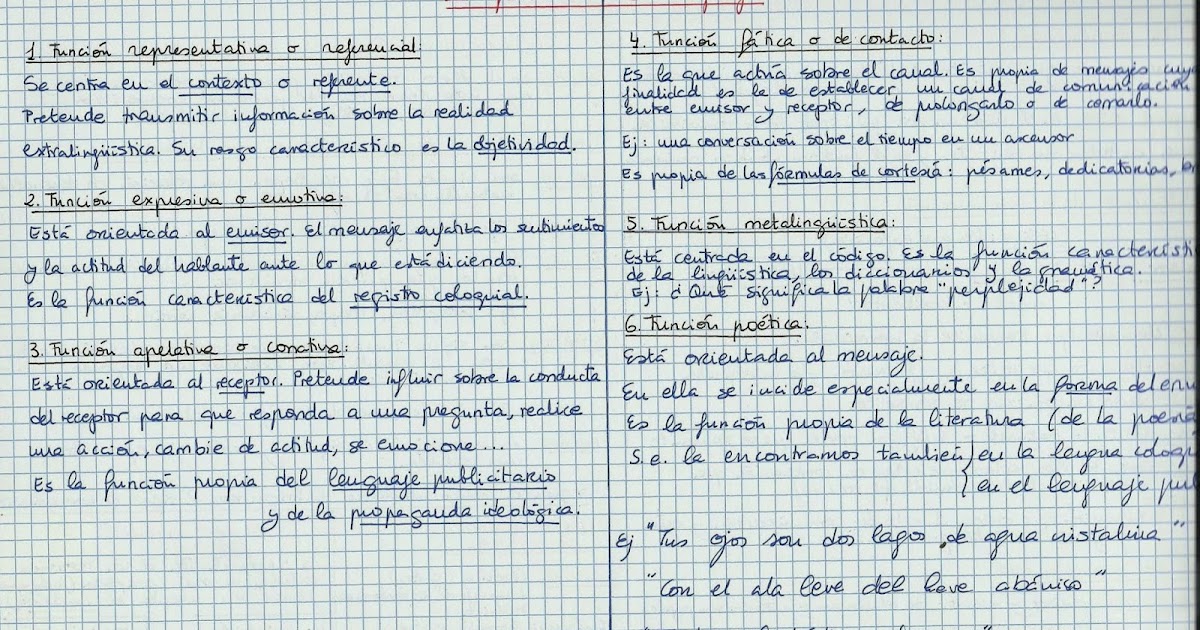 1. Función representativa o referencial:
Se centra en el contexto o referente.
Pretende transmitir información sobre la realidad
extralingüística. Su rasgo característico es la objetividad.
2. Función expresiva o emotiva:
Está orientada al emisor. El mensaje enfatiza los sentimientos
y la actitud del hablante ante lo que está diciendo.
Es la función característica del registro coloquial.
3. Función apelativa o conativa:
Está orientada al receptor. Pretende influir sobre la conducta
del receptor para que responda a una pregunta, realice
una acción, cambie de actitud, se emocione...
Es la función propia del lenguaje publicitario
y de la propaganda ideológica.
4. Función fática o de contacto:
Es la que actúa sobre el canal. Es propia de mensajes cuya
finalidad es la de establecer un canal de comunicación
entre emisor y receptor, de prolongarlo o de cerrarlo.
Ej: una conversación sobre el tiempo en un ascensor
Es propia de las fórmulas de cortesía: pésames, dedicatorias,
5. Función metalingüística:
Está centrada en el código. Es la función característi
de la lingüística, los diccionarios y la gramática.
Ej: ¿Qué significa la palabra "perplejidad"?
6. Función poética:
Está orientada al mensaje.
En ella se incide especialmente en la forma del enu
Es la función propia de la literatura (de la poesía
S.e. la encontramos también en la lengua coloqu
en el lenguaje pub
Ej "Tus ojos son dos lagos de agua cristalina"
"Con el ala leve del leve abánico"